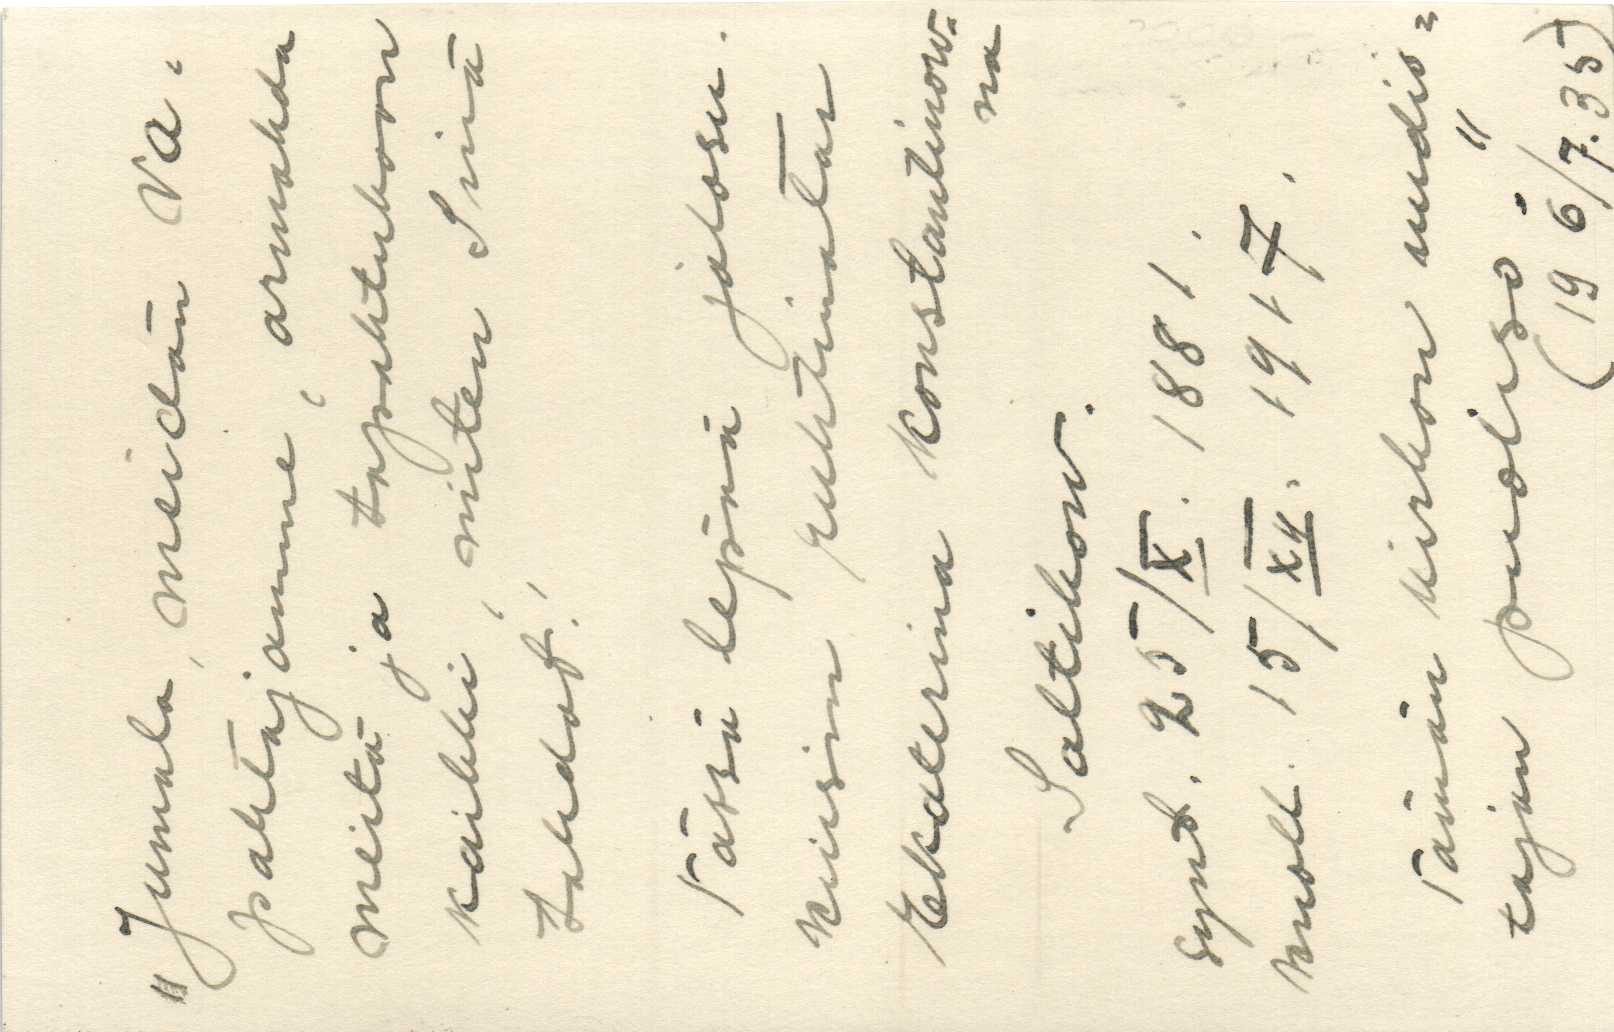 "Jumala, meidän Va-
pahtajamme, armahda
meitä ja tapahtukoon
kaikki, niiten Sinä
tahdot!
Tässä lepää jalosu-
kuisin ruhtinatar
Ekaterina Konstantinow-
na
Saltikow.
synt. 25/X. 1881.
kuoll. 15/XII. 1917.
Tämän kirkon uudis-
tajan puoliso."
(19 6/7.35)